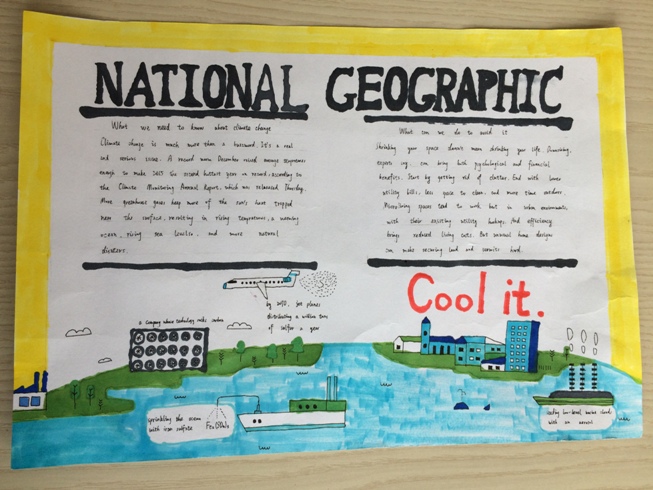 NATIONAL GEOGRAPHIC
What we need to know about climate change
Climate change is much more than a buzzword. It's a real
and serious issue. A record warm December raised average temperatures
enough to make 2017 the second hottest year on record, according to
the Climate Monitoring Annual Report, which was released Thursday.
More greenhouse gases keep more of the sun's heat trapped
near the surface, resulting in rising temperatures, a warming
ocean, rising sea levels, and more natural
disasters.
What can we do to avoid it
Shrinking your space doesn't mean shrinking your life. Downsizing,
experts say, can bring both psychological and financial
benefits. Start by getting rid of clutter. End with lower
utility bills, less space to clean, and more time outdoors.
Microliving spaces tend to work best in urban environments
with their existing utility hookups. And efficiency
brings reduced living costs. But minimal home designs
can make securing land and permits hard.
Cool it.
by 2070, jet planes
distributing a million tons
of sulfur a year
a company whose technology sucks carbon
sprinkling the ocean
with iron sulfate
seeding low-level marine clouds
with an aerosol